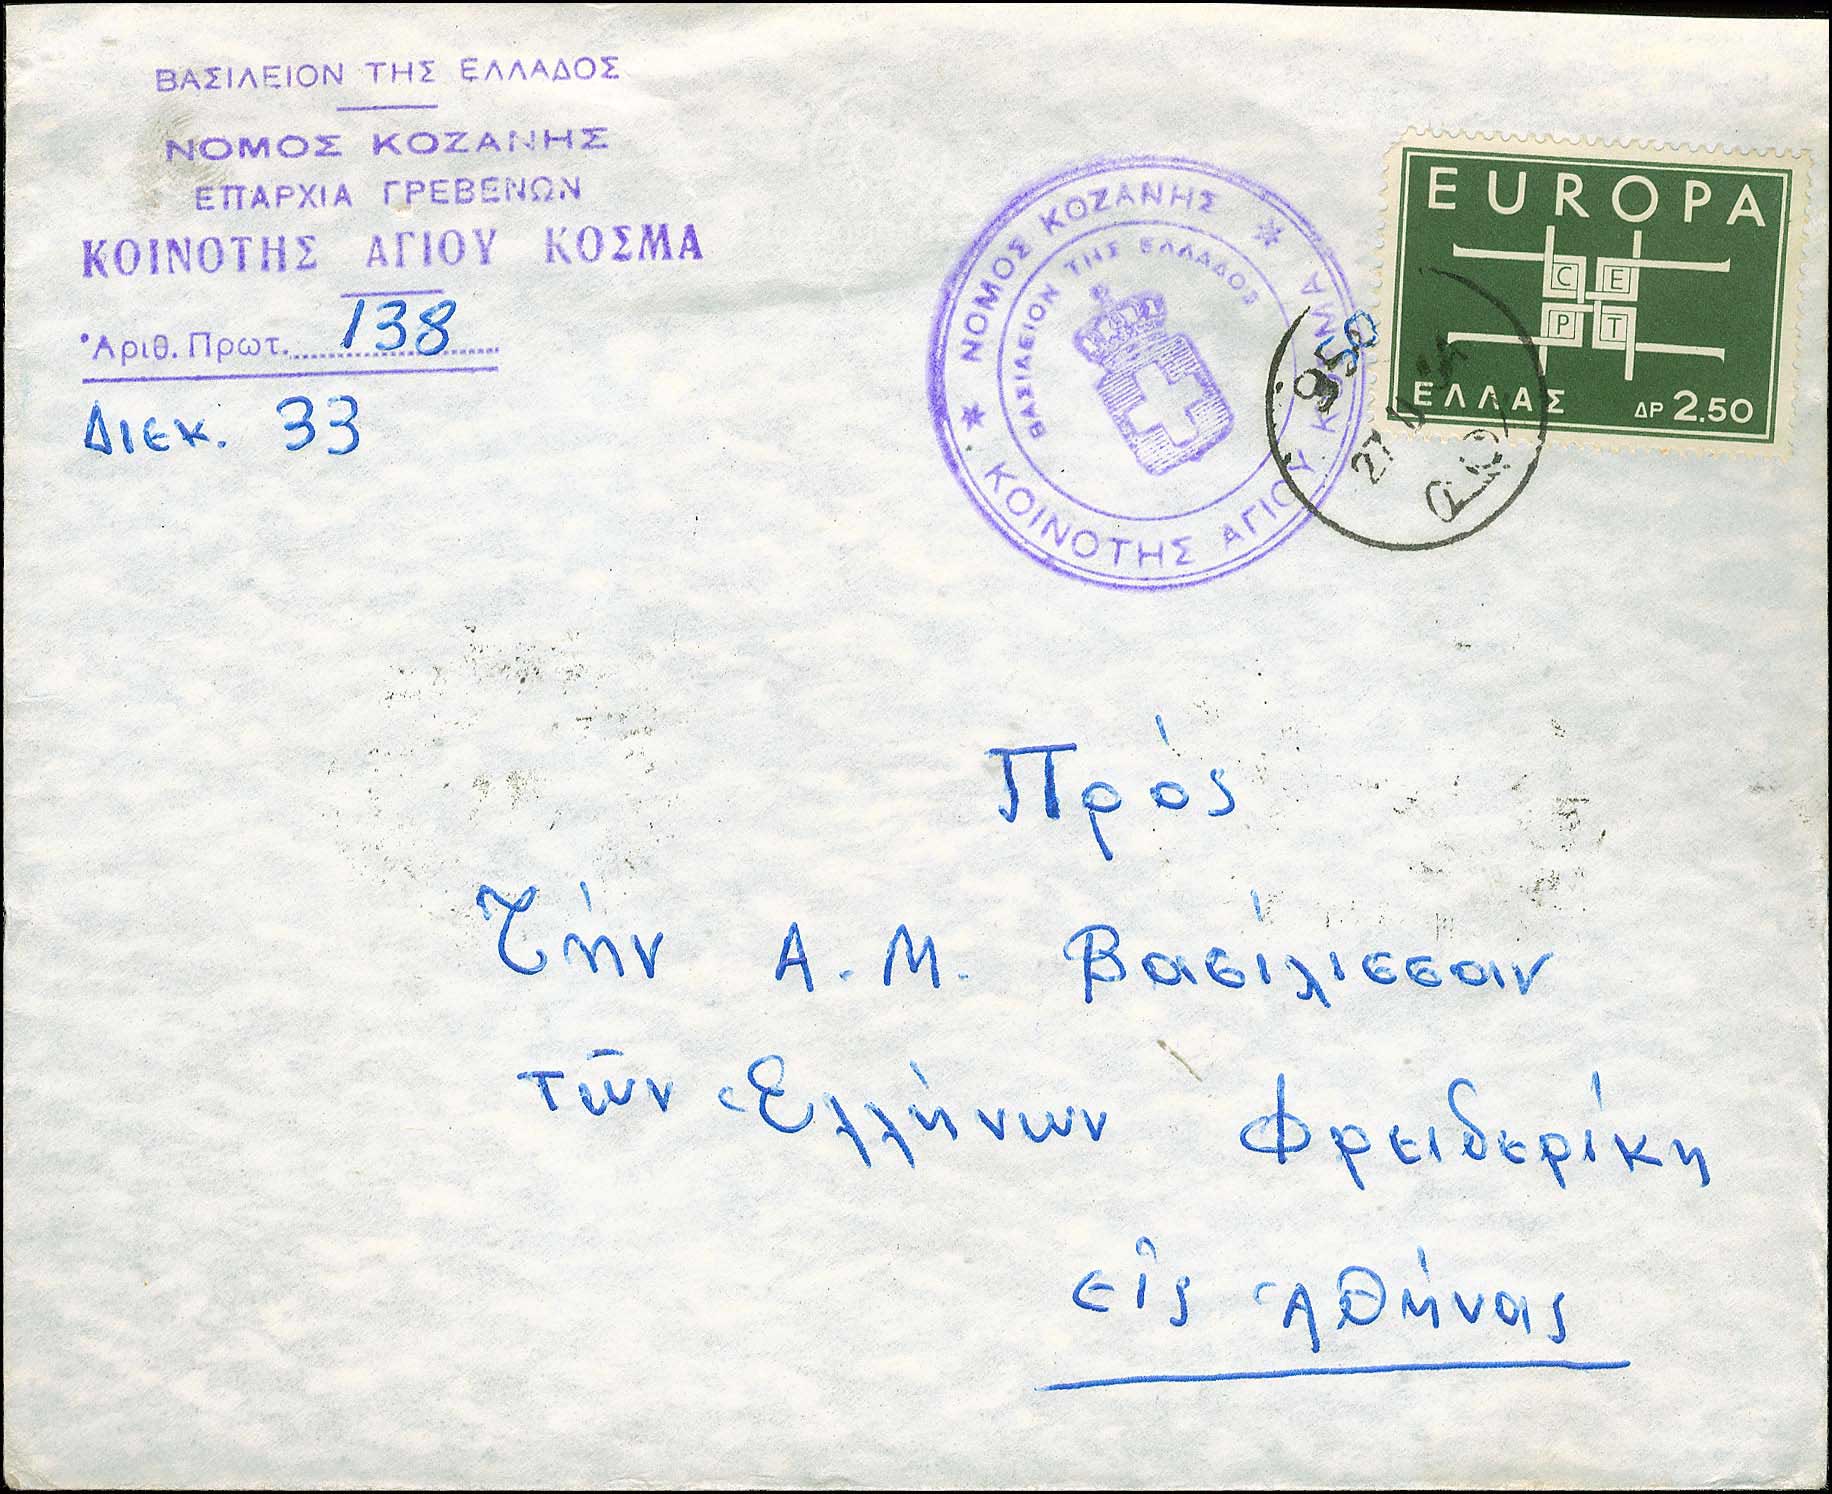 ΒΑΣΙΛΕΙΟΝ ΤΗΣ ΕΛΛΑΔΟΣ
ΝΟΜΟΣ ΚΟΖΑΝΗΣ
ΕΠΑΡΧΙΑ ΓΡΕΒΕΝΩΝ
ΚΟΙΝΟΤΗΣ ΑΓΙΟΥ ΚΟΣΜΑ
Ἀριθ. Πρωτ. 138
Διεκ. 33
ΝΟΜΟΣ ΚΟΖΑΝΗΣ
ΚΟΙΝΟΤΗΣ ΑΓΙΟΥ ΚΟΣΜΑ
ΒΑΣΙΛΕΙΟΝ ΤΗΣ ΕΛΛΑΔΟΣ
EUROPA
C E
P T
ΕΛΛΑΣ ΔΡ 2.50
950
Πρός
Τήν Α. Μ. Βασίλισσαν
τῶν Ἑλλήνων Φρειδερίκη
εἰς Ἀθήνας